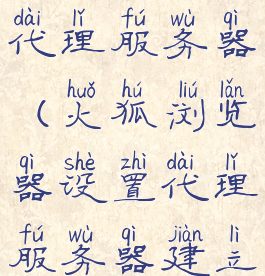 dài lǐ fú wù qì
代理服务器
huǒ hú liú lǎn
（火狐浏览
qì shè zhì dài lǐ
器设置代理
fú wù qì jiàn lì
服务器建立